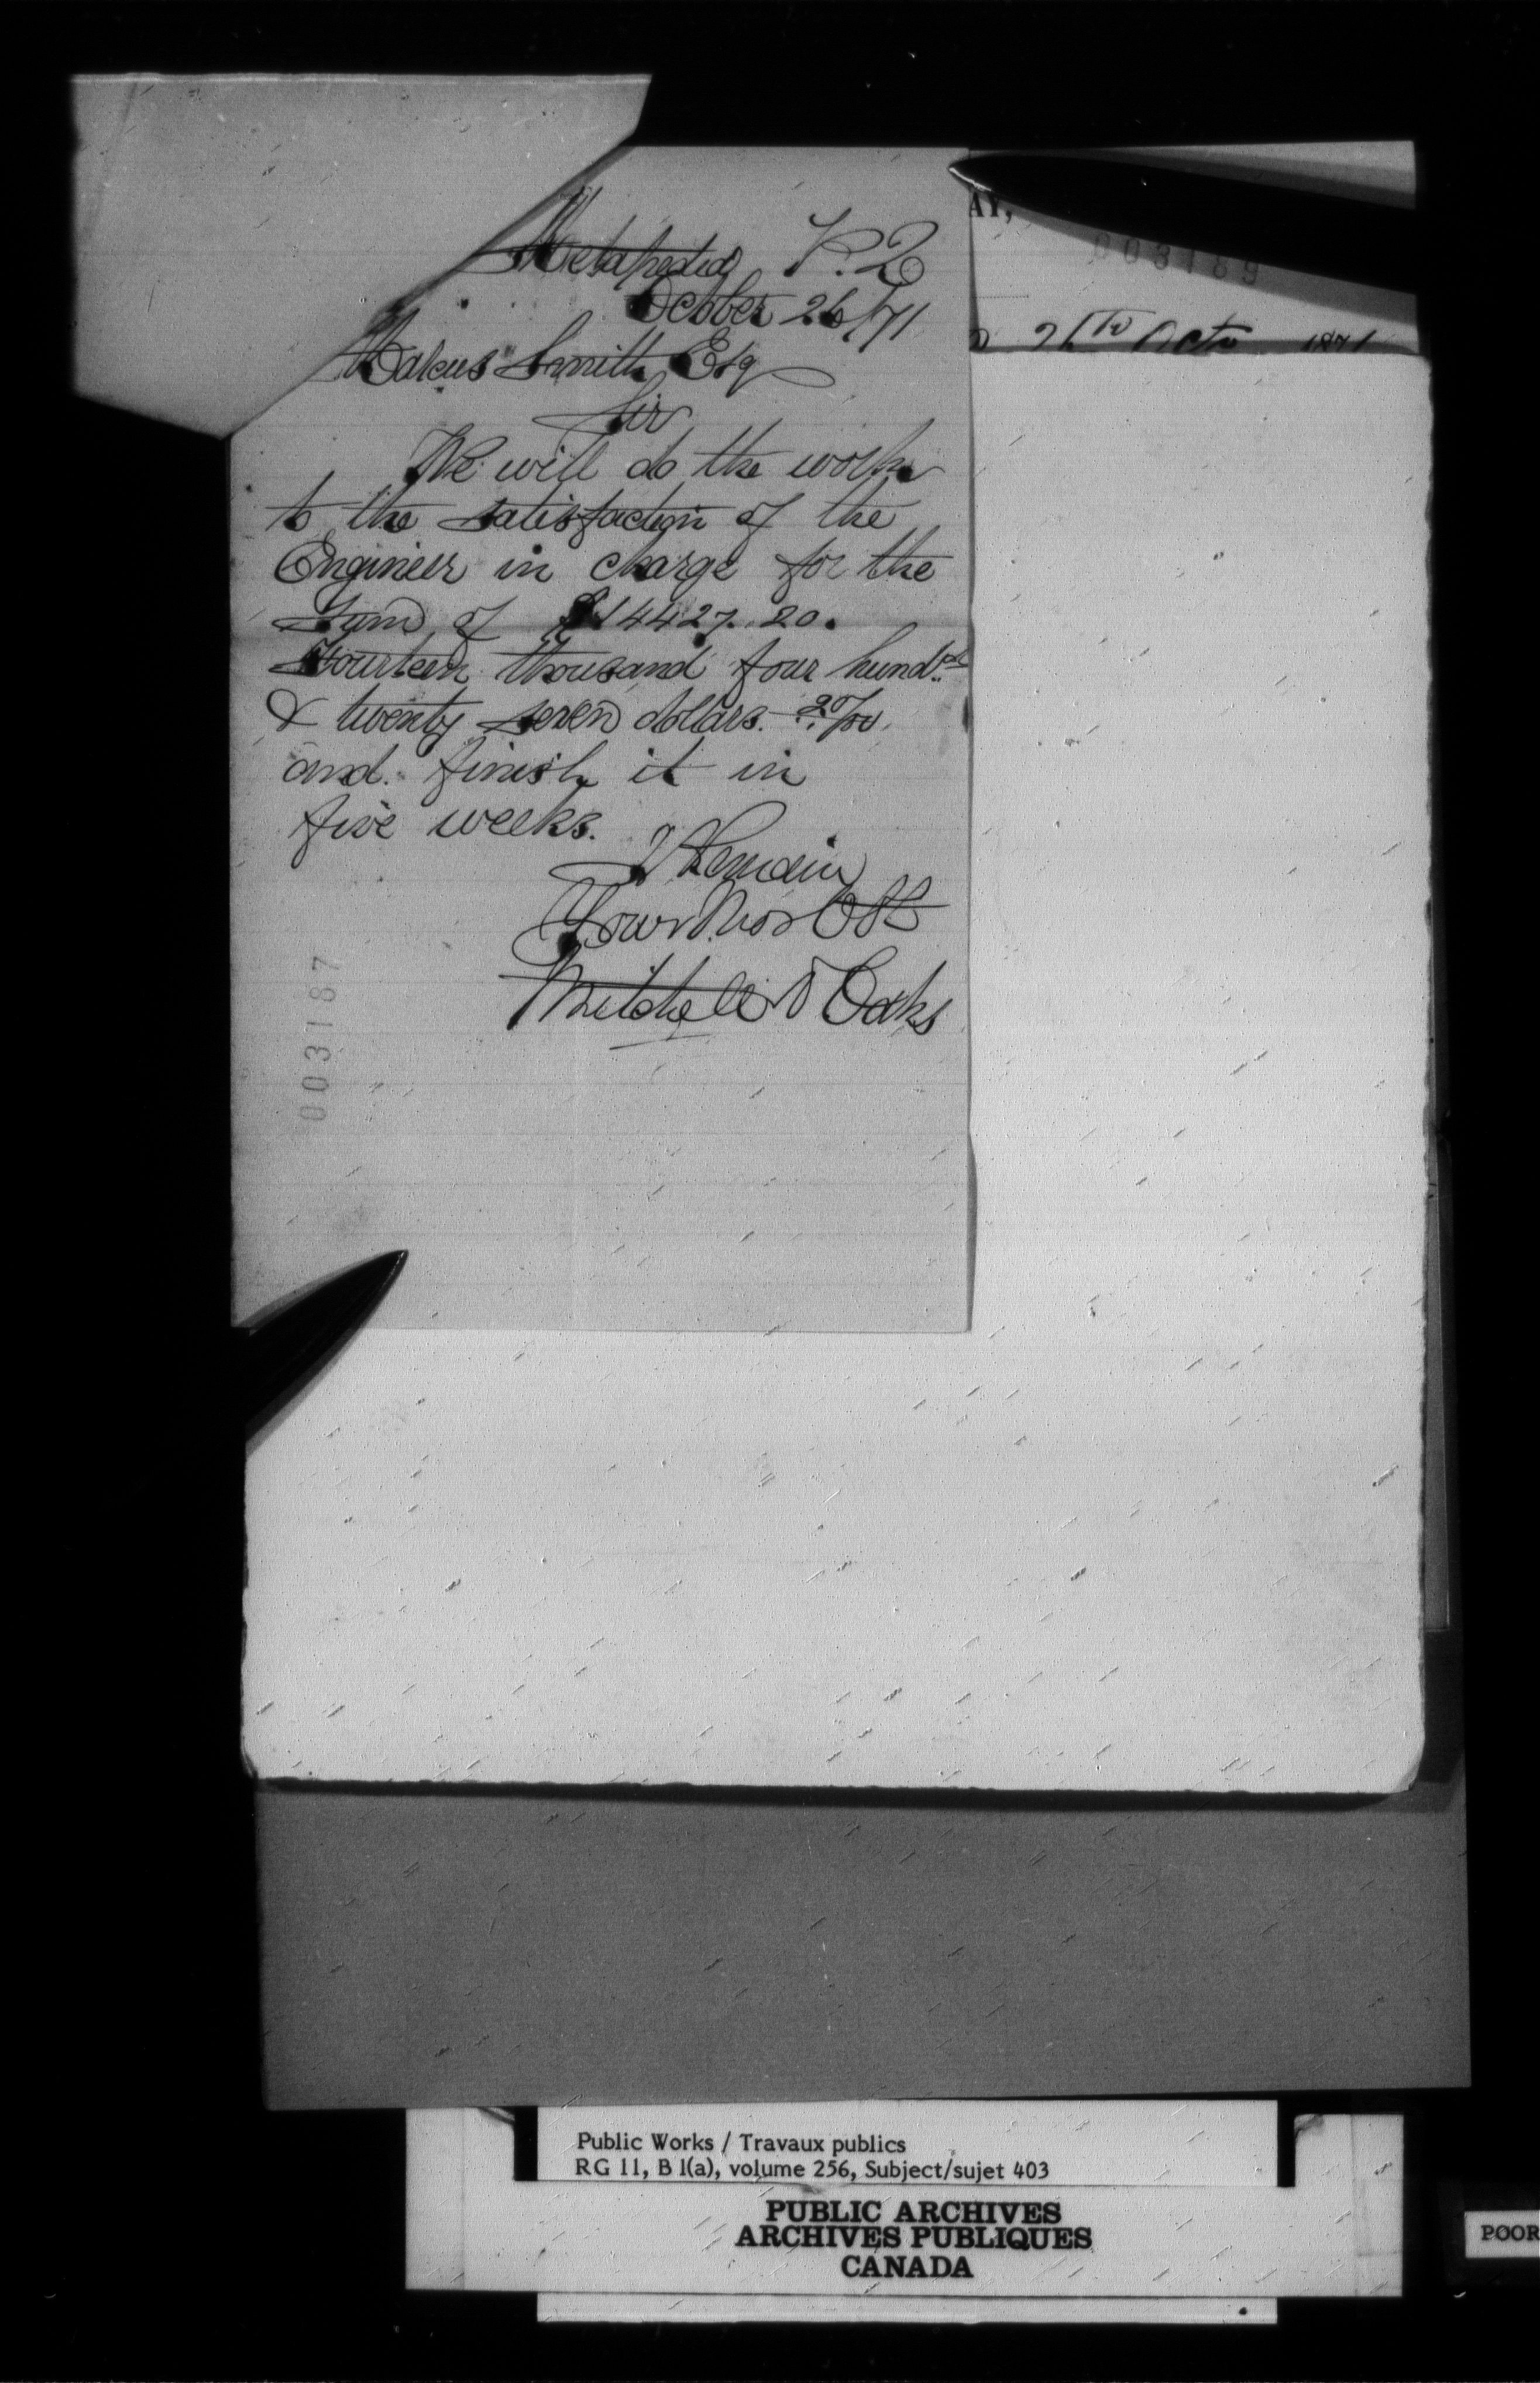 Metapedia P.Q
October 26/71
Marcus Smith Esq
Sir
We will do the work
to the satisfaction of the
Engineer in charge for the
Sum of $14427.20.
Fourteen thousand four hundd
& twenty seven dollars. 20/00
and finish it in
five weeks.
I Remain
Your Mos Obt
Mitchell & Oaks
003187
AY,
003189
26th Octo 1871
Public Works / Travaux publics
RG 11, B 1(a), volume 256, Subject/sujet 403
PUBLIC ARCHIVES
ARCHIVES PUBLIQUES
CANADA
POOR